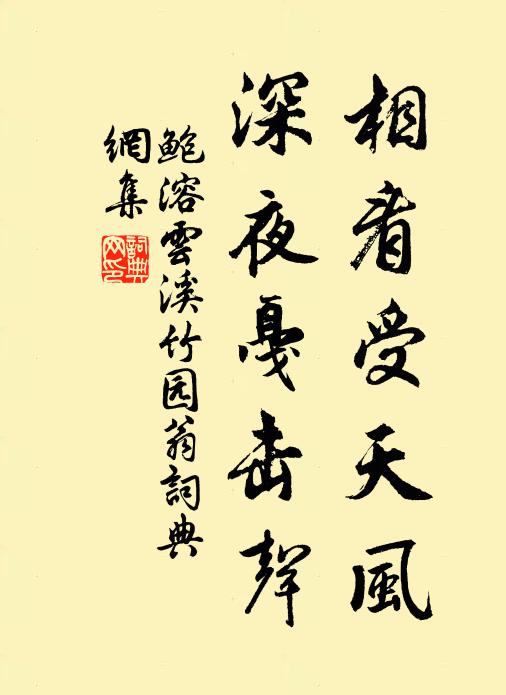 相看受天風
深夜戛击聲
鲍溶雲溪竹园翁詞典
網集
詞典
网印